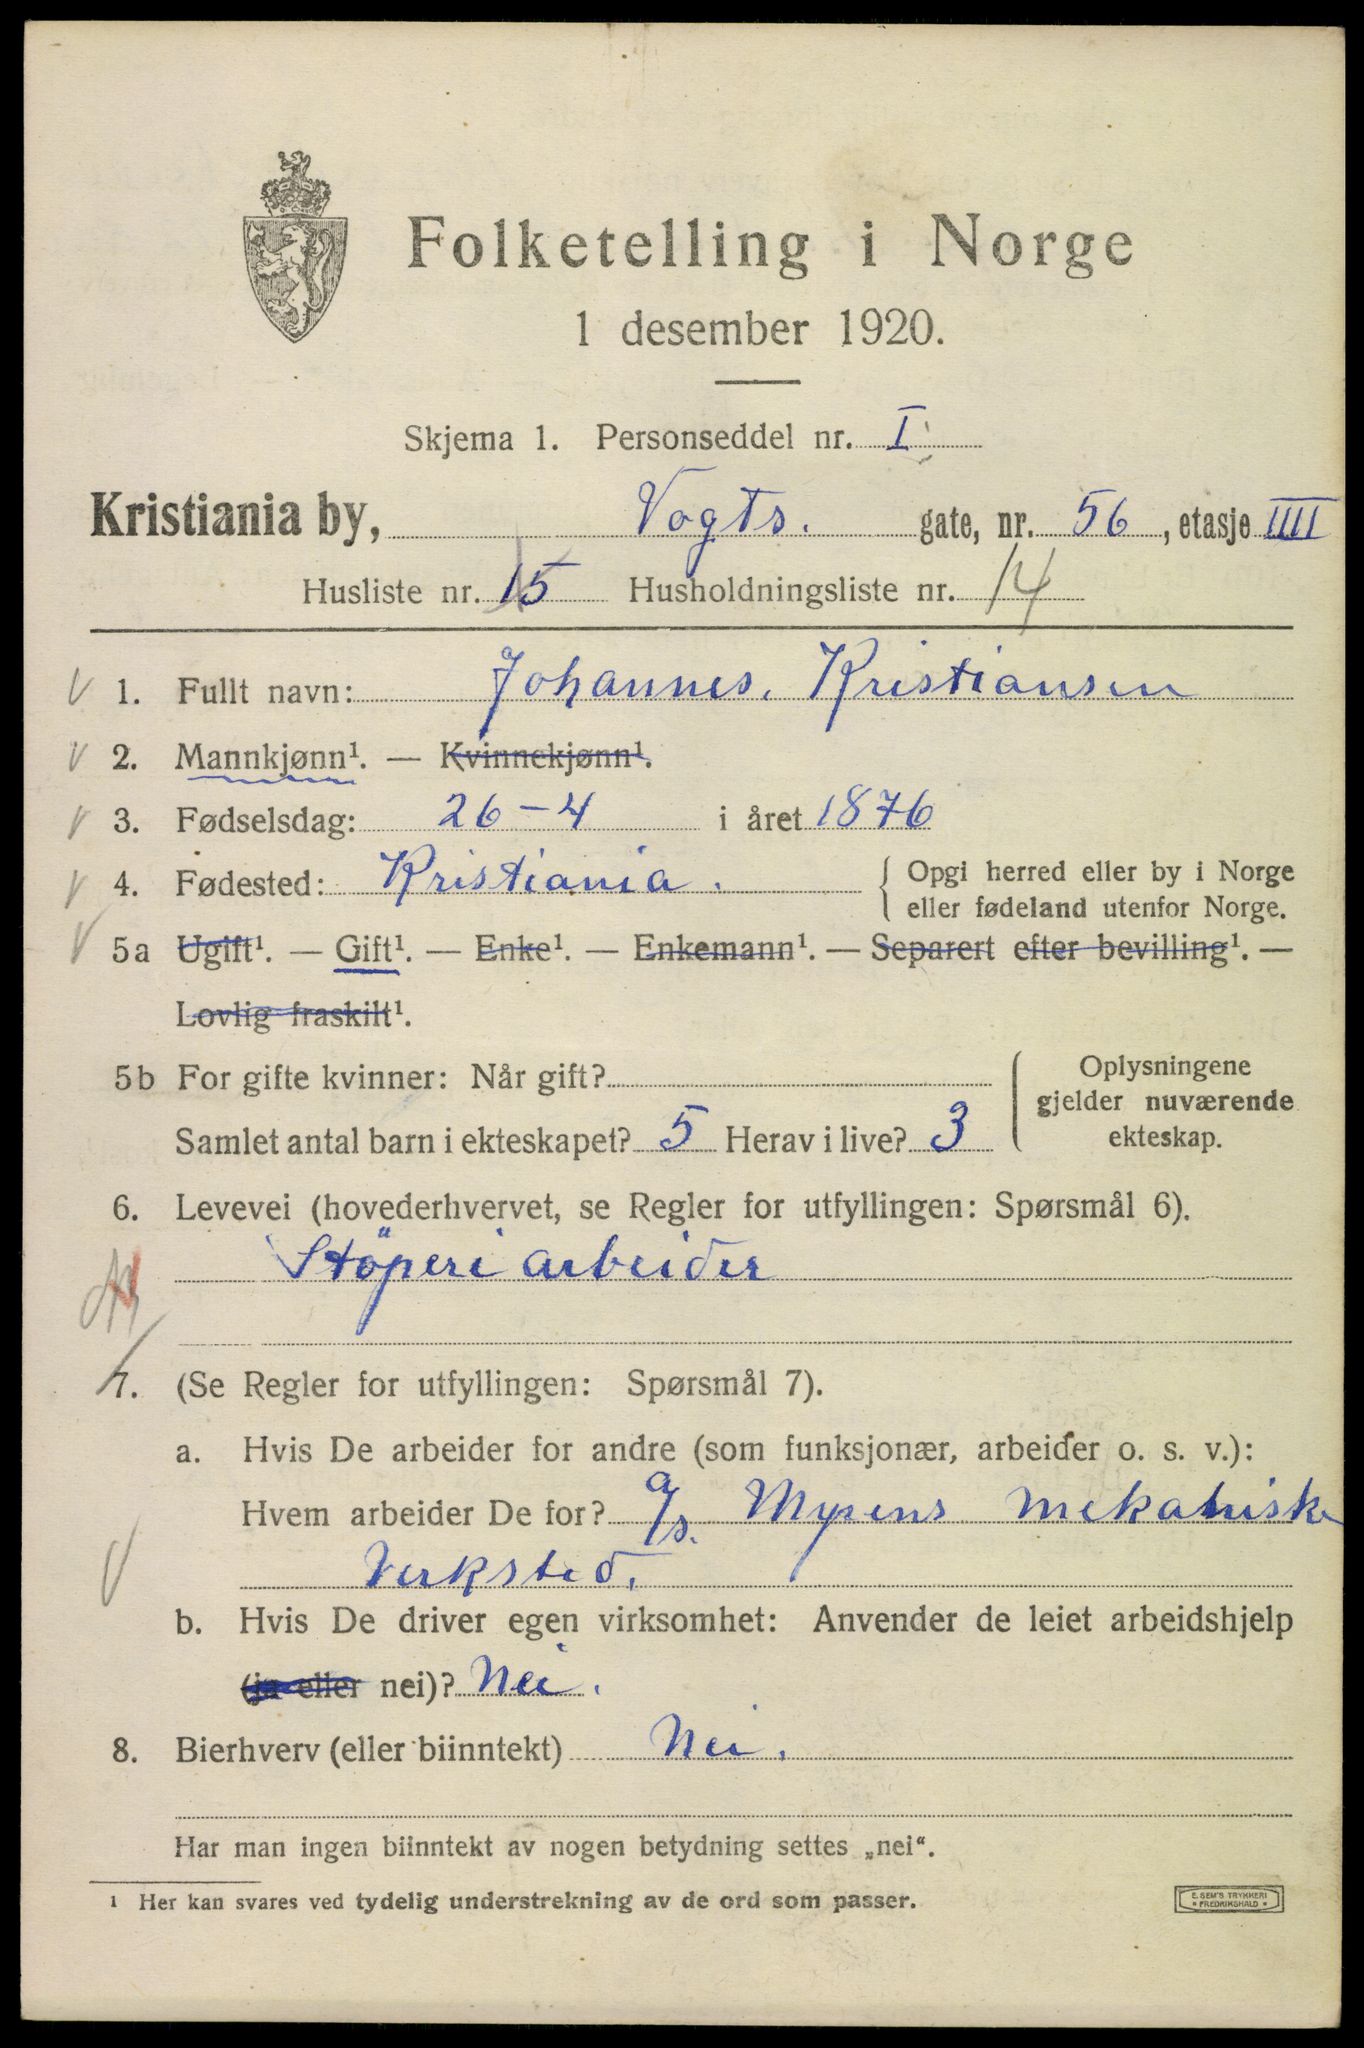 Folketelling i Norge
1 desember 1920.
Skjema 1. Personseddel nr. I
Kristiania by, Vogts. gate, nr. 56, etasje IIII
Husliste nr. 15 Husholdningsliste nr. 14
V 1. Fullt navn: Johannes. Kristiansen
V 2. Mannkjønn¹. — Kvinnekjønn¹.
V 3. Fødselsdag: 26-4 i året 1876
V 4. Fødested: Kristiania. { Opgi herred eller by i Norge
eller fødeland utenfor Norge.
V 5a Ugift¹. — Gift¹. — Enke¹. — Enkemann¹. — Separert efter bevilling¹. —
Lovlig fraskilt¹.
5b For gifte kvinner: Når gift? { Oplysningene
gjelder nuværende
ekteskap.
Samlet antal barn i ekteskapet? 5 Herav i live? 3
6. Levevei (hovederhvervet, se Regler for utfyllingen: Spørsmål 6).
Stöperi arbeider
7. (Se Regler for utfyllingen: Spørsmål 7).
a. Hvis De arbeider for andre (som funksjonær, arbeider o. s. v.):
Hvem arbeider De for? a/s. Myrens mekaniske
V Verksted.
b. Hvis De driver egen virksomhet: Anvender de leiet arbeidshjelp
(ja eller nei)? Nei.
8. Bierhverv (eller biinntekt) Nei.
Har man ingen biinntekt av nogen betydning settes „nei“.
¹ Her kan svares ved tydelig understrekning av de ord som passer.
E. SEM'S TRYKKERI
* FREDRIKSHALD *